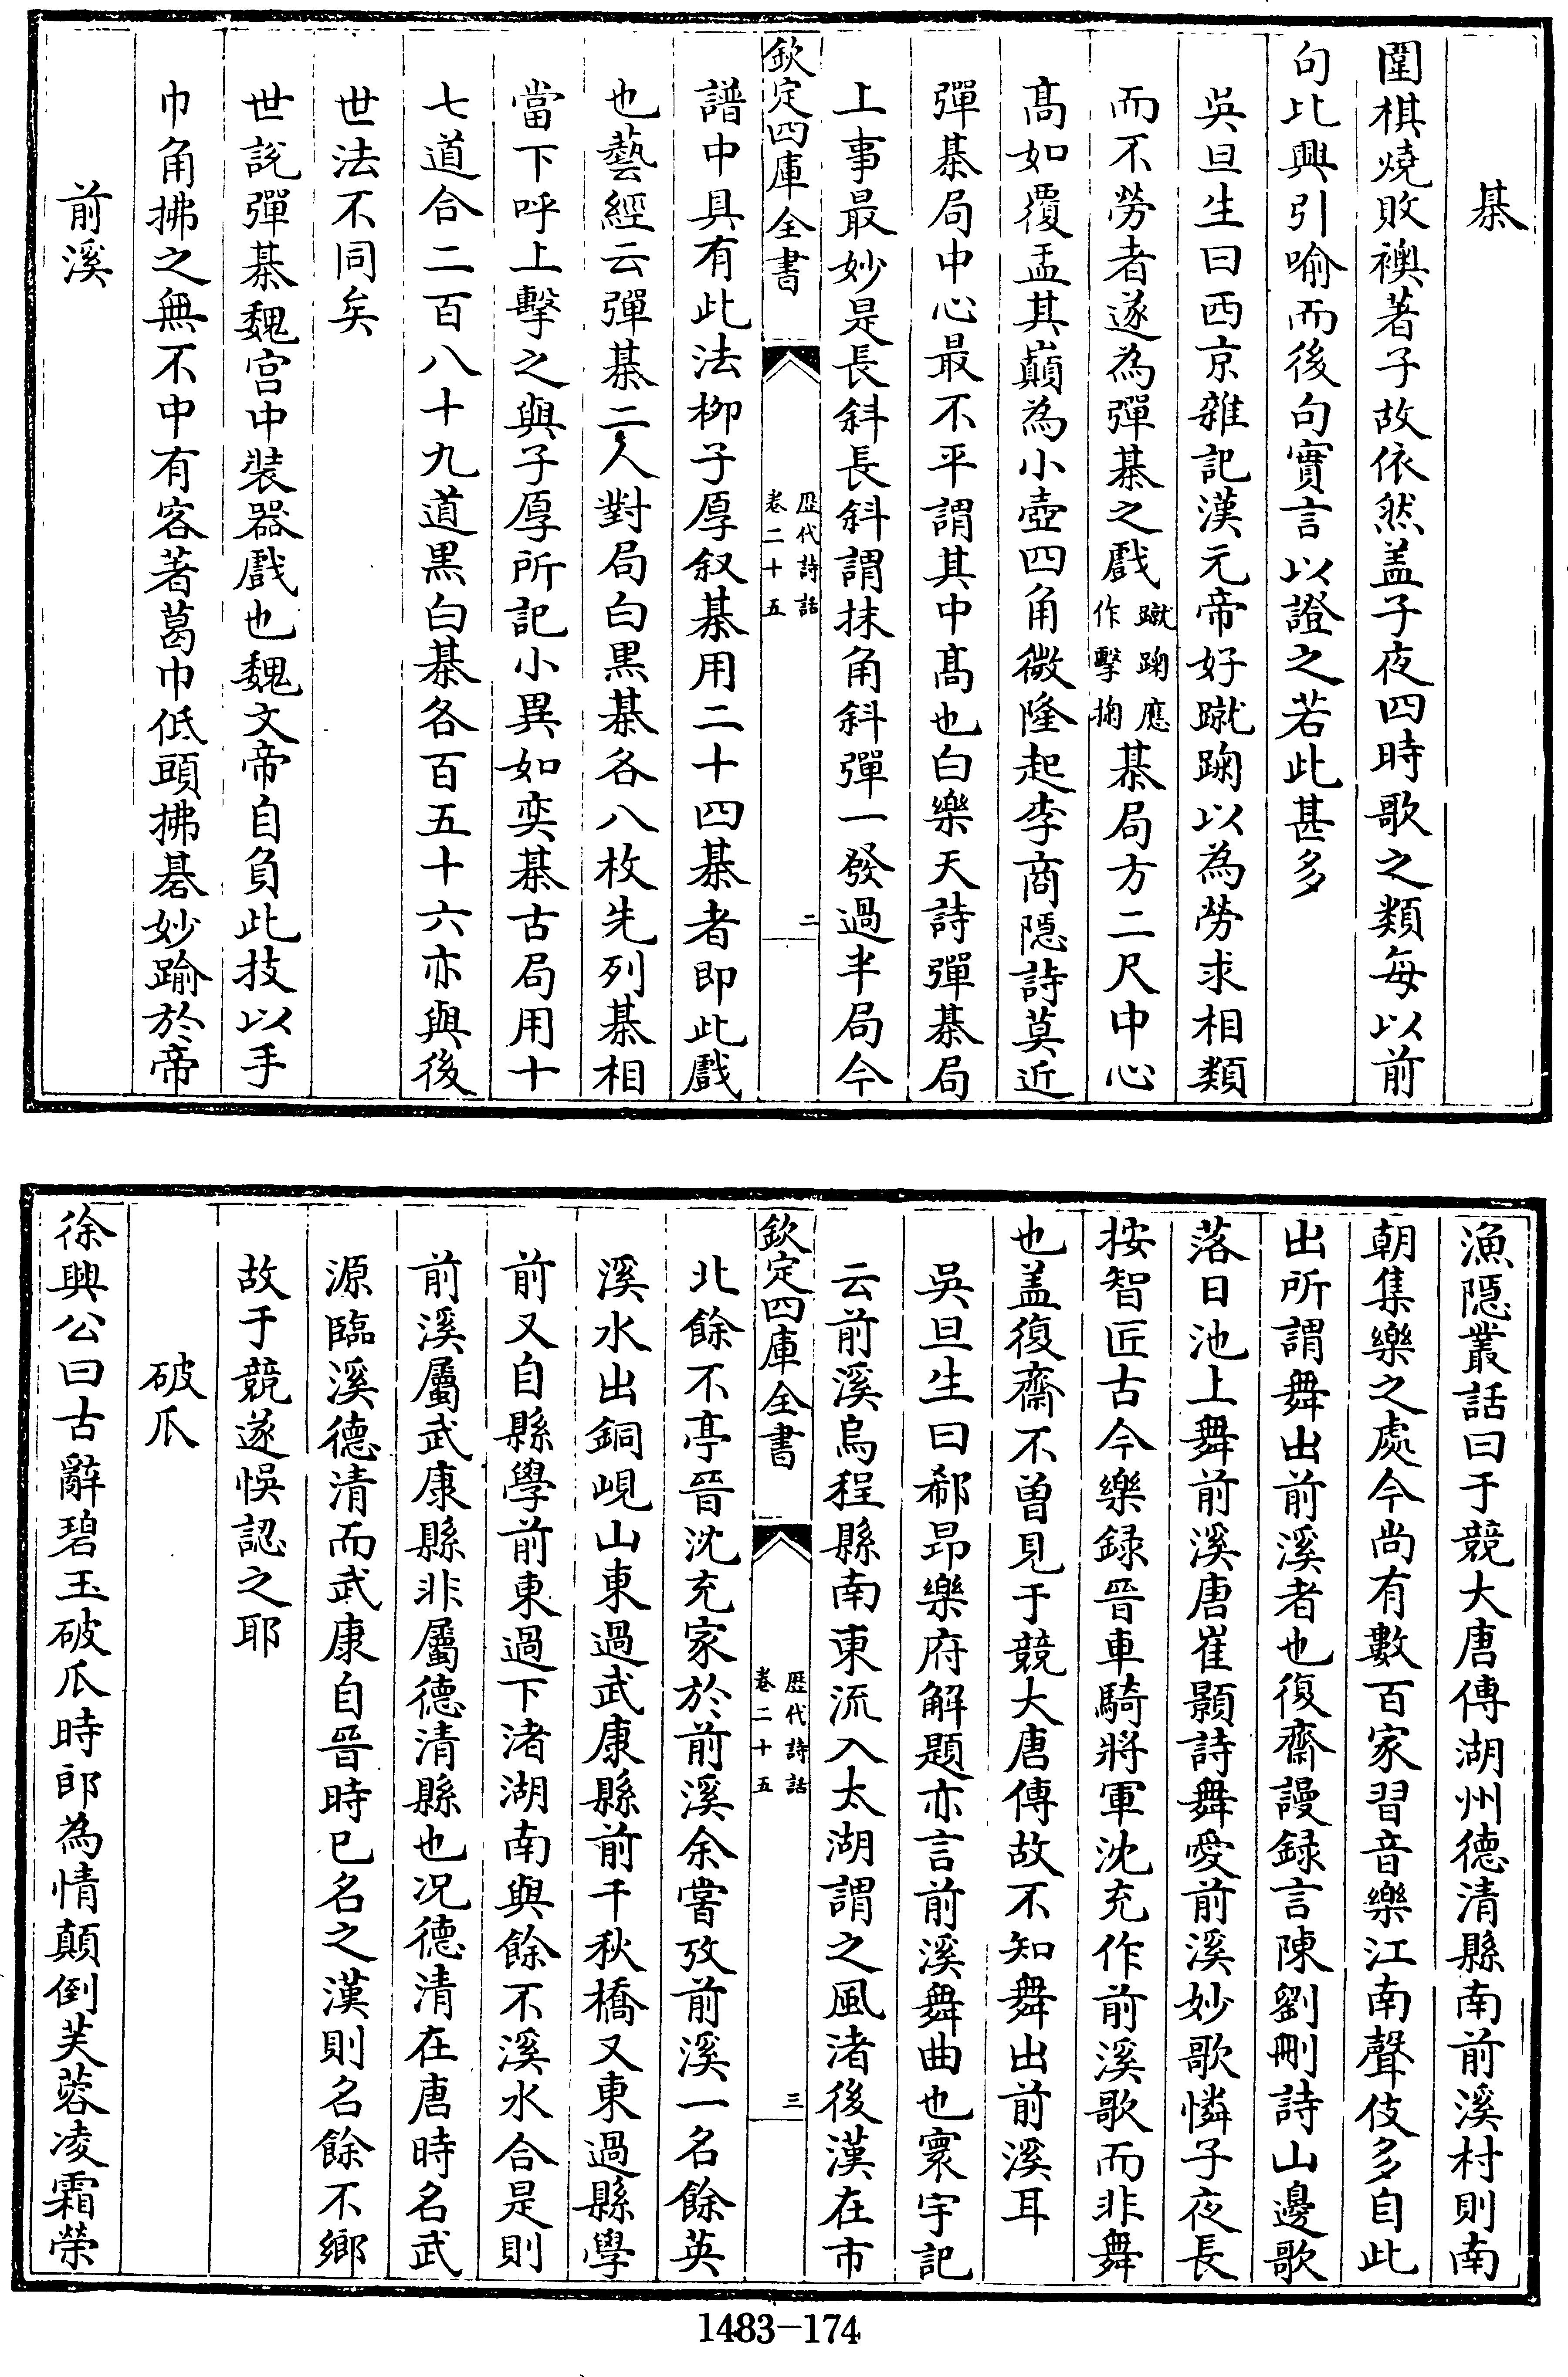 棊
圍棋燒敗襖著子故依然盖子夜四時歌之類每以前
句比興引喻而後句實言以證之若此甚多
吳旦生曰西京雜記漢元帝好蹴踘以為勞求相類
而不勞者遂為彈棊之戲蹴踘應作擊掬棊局方二尺中心
髙如覆盂其巔為小壺四角微隆起李商隱詩莫近
彈棊局中心最不平謂其中髙也白樂天詩彈棊局
上事最妙是長斜長斜謂抹角斜彈一發過半局今
欽定四庫全書
歴代詩話
卷二十五
二
譜中具有此法栁子厚叙棊用二十四棊者即此戲
也藝經云彈棊二人對局白黒棊各八枚先列棊相
當下呼上擊之與子厚所記小異如奕棊古局用十
七道合二百八十九道黒白棊各百五十六亦與後
世法不同矣
世説彈棊魏宫中裝器戲也魏文帝自負此技以手
巾角拂之無不中有客著葛巾低頭拂碁妙踰於帝
前溪
漁隱叢話曰于競大唐傳湖州德清縣南前溪村則南
朝集樂之處今尚有數百家習音樂江南聲伎多自此
出所謂舞出前溪者也復齋謾録言陳劉刪詩山邊歌
落日池上舞前溪唐崔顥詩舞愛前溪妙歌憐子夜長
按智匠古今樂録晉車騎將軍沈充作前溪歌而非舞
也盖復齋不曽見于競大唐傳故不知舞出前溪耳
吳旦生曰郗昂樂府解題亦言前溪舞曲也寰宇記
云前溪烏程縣南東流入太湖謂之風渚後漢在市
欽定四庫全書
歴代詩話
卷二十五
三
北餘不亭晉沈充家於前溪余嘗攷前溪一名餘英
溪水出銅峴山東過武康縣前千秋橋又東過縣學
前又自縣學前東過下渚湖南與餘不溪水合是則
前溪屬武康縣非屬德清縣也况德清在唐時名武
源臨溪德清而武康自晉時已名之漢則名餘不鄉
故于競遂悞認之耶
破瓜
徐興公曰古辭碧玉破瓜時郎為情顛倒芙蓉凌霜榮
1483-174